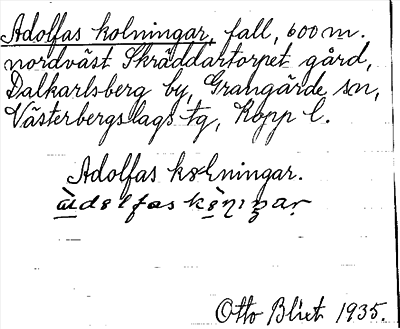 Adolfas kolningar, fall, 600 m.
nordväst Skräddartorpet gård,
Dalkarlsberg by, Grangärde sn,
Västerbergslags tg, Kopp l.
Adolfas kolningar.
Otto Blixt 1935.